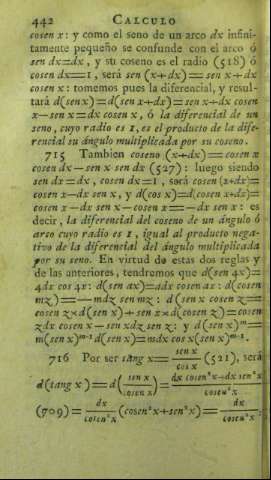 442 CALCULO
cosen x: y como el seno de un arco dx infini-
tamente pequeño se confunde con el arco ó
sen dx=dx, y su coseno es el radio (518) ó
cosen dx=1, será sen (x+dx)=sen x+dx
cosen x: tomemos pues la diferencial, y resul-
tará d(sen x)=d(sen x+dx)=sen x+dx cosen
x−sen x=dx cosen x, ó la diferencial de un
seno, cuyo radio es 1, es el producto de la dife-
rencial su ángulo multiplicada por su coseno.
715 Tambien coseno (x+dx)=cosen x
cosen dx−sen x sen dx (527): luego siendo
sen dx=dx, cosen dx=1, será cosen (x+dx)=
cosen x−dx sen x, y d(cos x)=d(cosen x+dx)=
cosen x−dx sen x−cosen x=−dx sen x: es
decir, la diferencial del coseno de un ángulo ó
arco cuyo radio es 1, igual al producto nega-
tivo de la diferencial del ángulo multiplicada
por su seno. En virtud de estas dos reglas y
de las anteriores, tendremos que d(sen 4x)=
4dx cos 4x: d(sen ax)=adx cosen ax: d(cosen
mz)=−mdz sen mz: d(sen x cosen z=
cosen z×d(sen x)+sen x×d(cosen z)=cosen
zdx cosen x−sen xdz sen z: y d(sen x)ᵐ=
m(sen x)ᵐ⁻¹ d(sen x)=mdx cos x(sen x)ᵐ⁻¹.
716 Por ser tang x= sen x / cos x (521), será
d(tang x)=d(sen x / cosen x)= dx cosen²x+dx sen²x / cosen²x
(709)= dx / cosen²x (cosen²x+sen²x)= dx / cosen²x